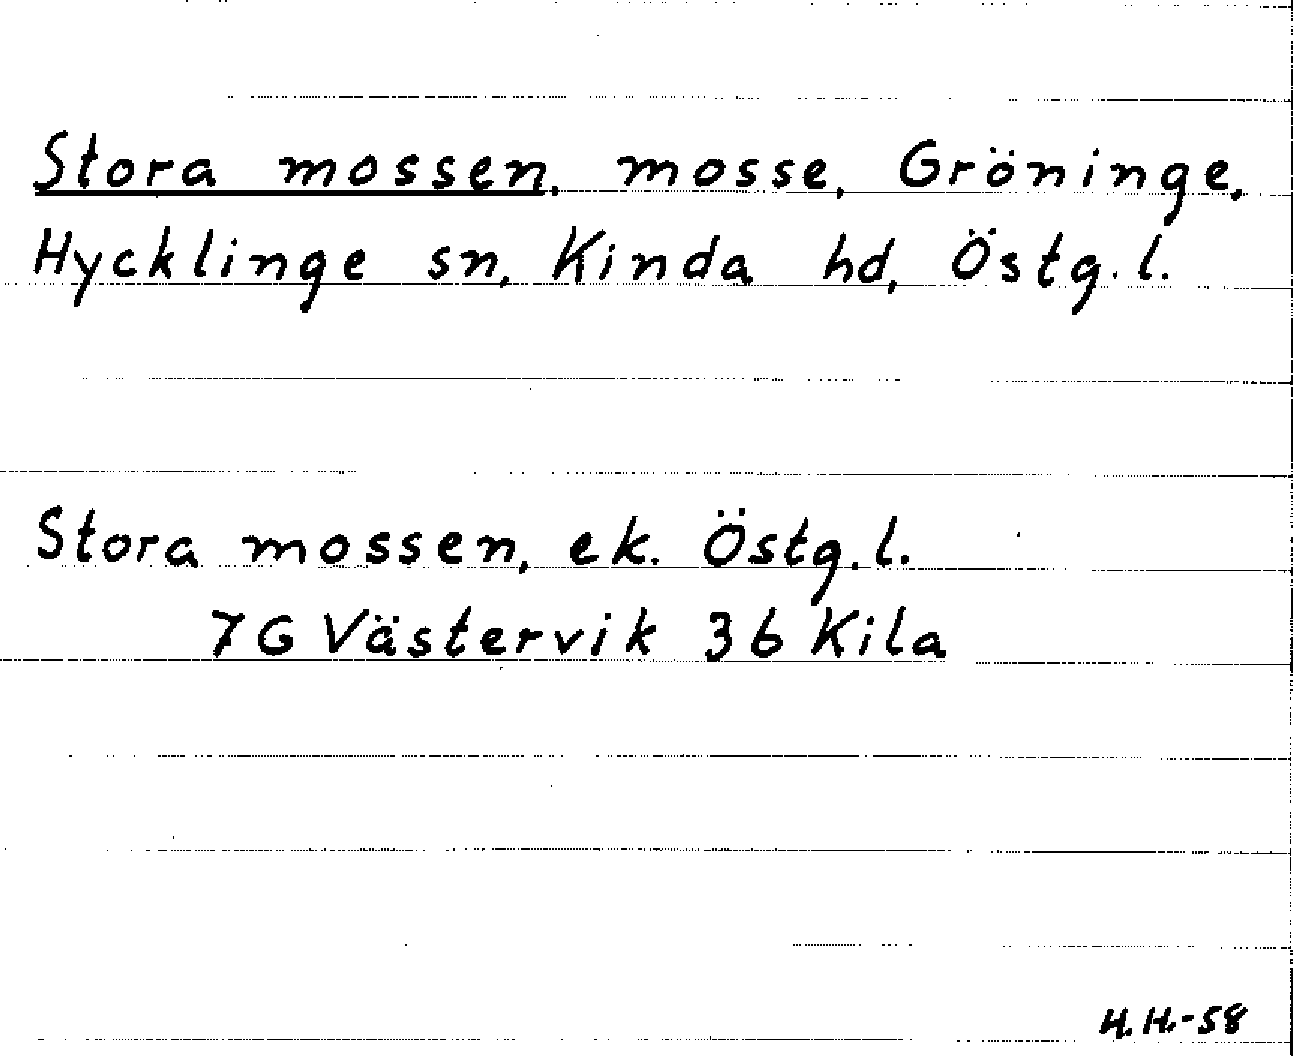 Stora mossen, mosse, Gröninge,
Hycklinge sn, Kinda hd, Östg. l.
Stora mossen, ek. Östg. l.
7G Västervik 3b Kila
H.H.-58